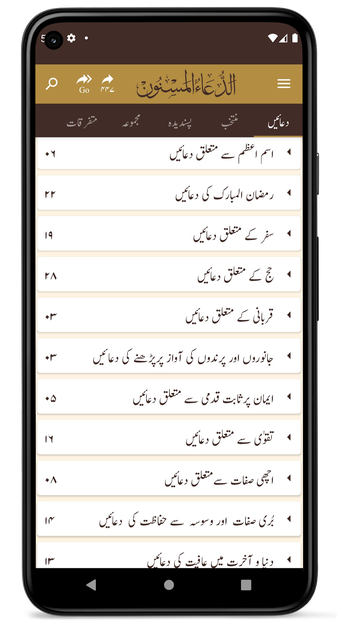 Go
۴۴۷
الدُّعَاءُ المَسْنُون
دعائیں منتخب پسندیدہ مجموعہ متفرقات
اسم اعظم سے متعلق دعائیں ۰۶
رمضان المبارک کی دعائیں ۲۲
سفر کے متعلق دعائیں ۱۹
حج کے متعلق دعائیں ۲۸
قربانی کے متعلق دعائیں ۰۳
جانوروں اور پرندوں کی آواز پر پڑھنے کی دعائیں ۰۳
ایمان پر ثابت قدمی سے متعلق دعائیں ۰۵
تقوٰی سے متعلق دعائیں ۱۶
اچھی صفات سے متعلق دعائیں ۰۸
بُری صفات اور وسوسہ سے حفاظت کی دعائیں ۱۴
دنیا و آخرت میں عافیت کی دعائیں ۱۳